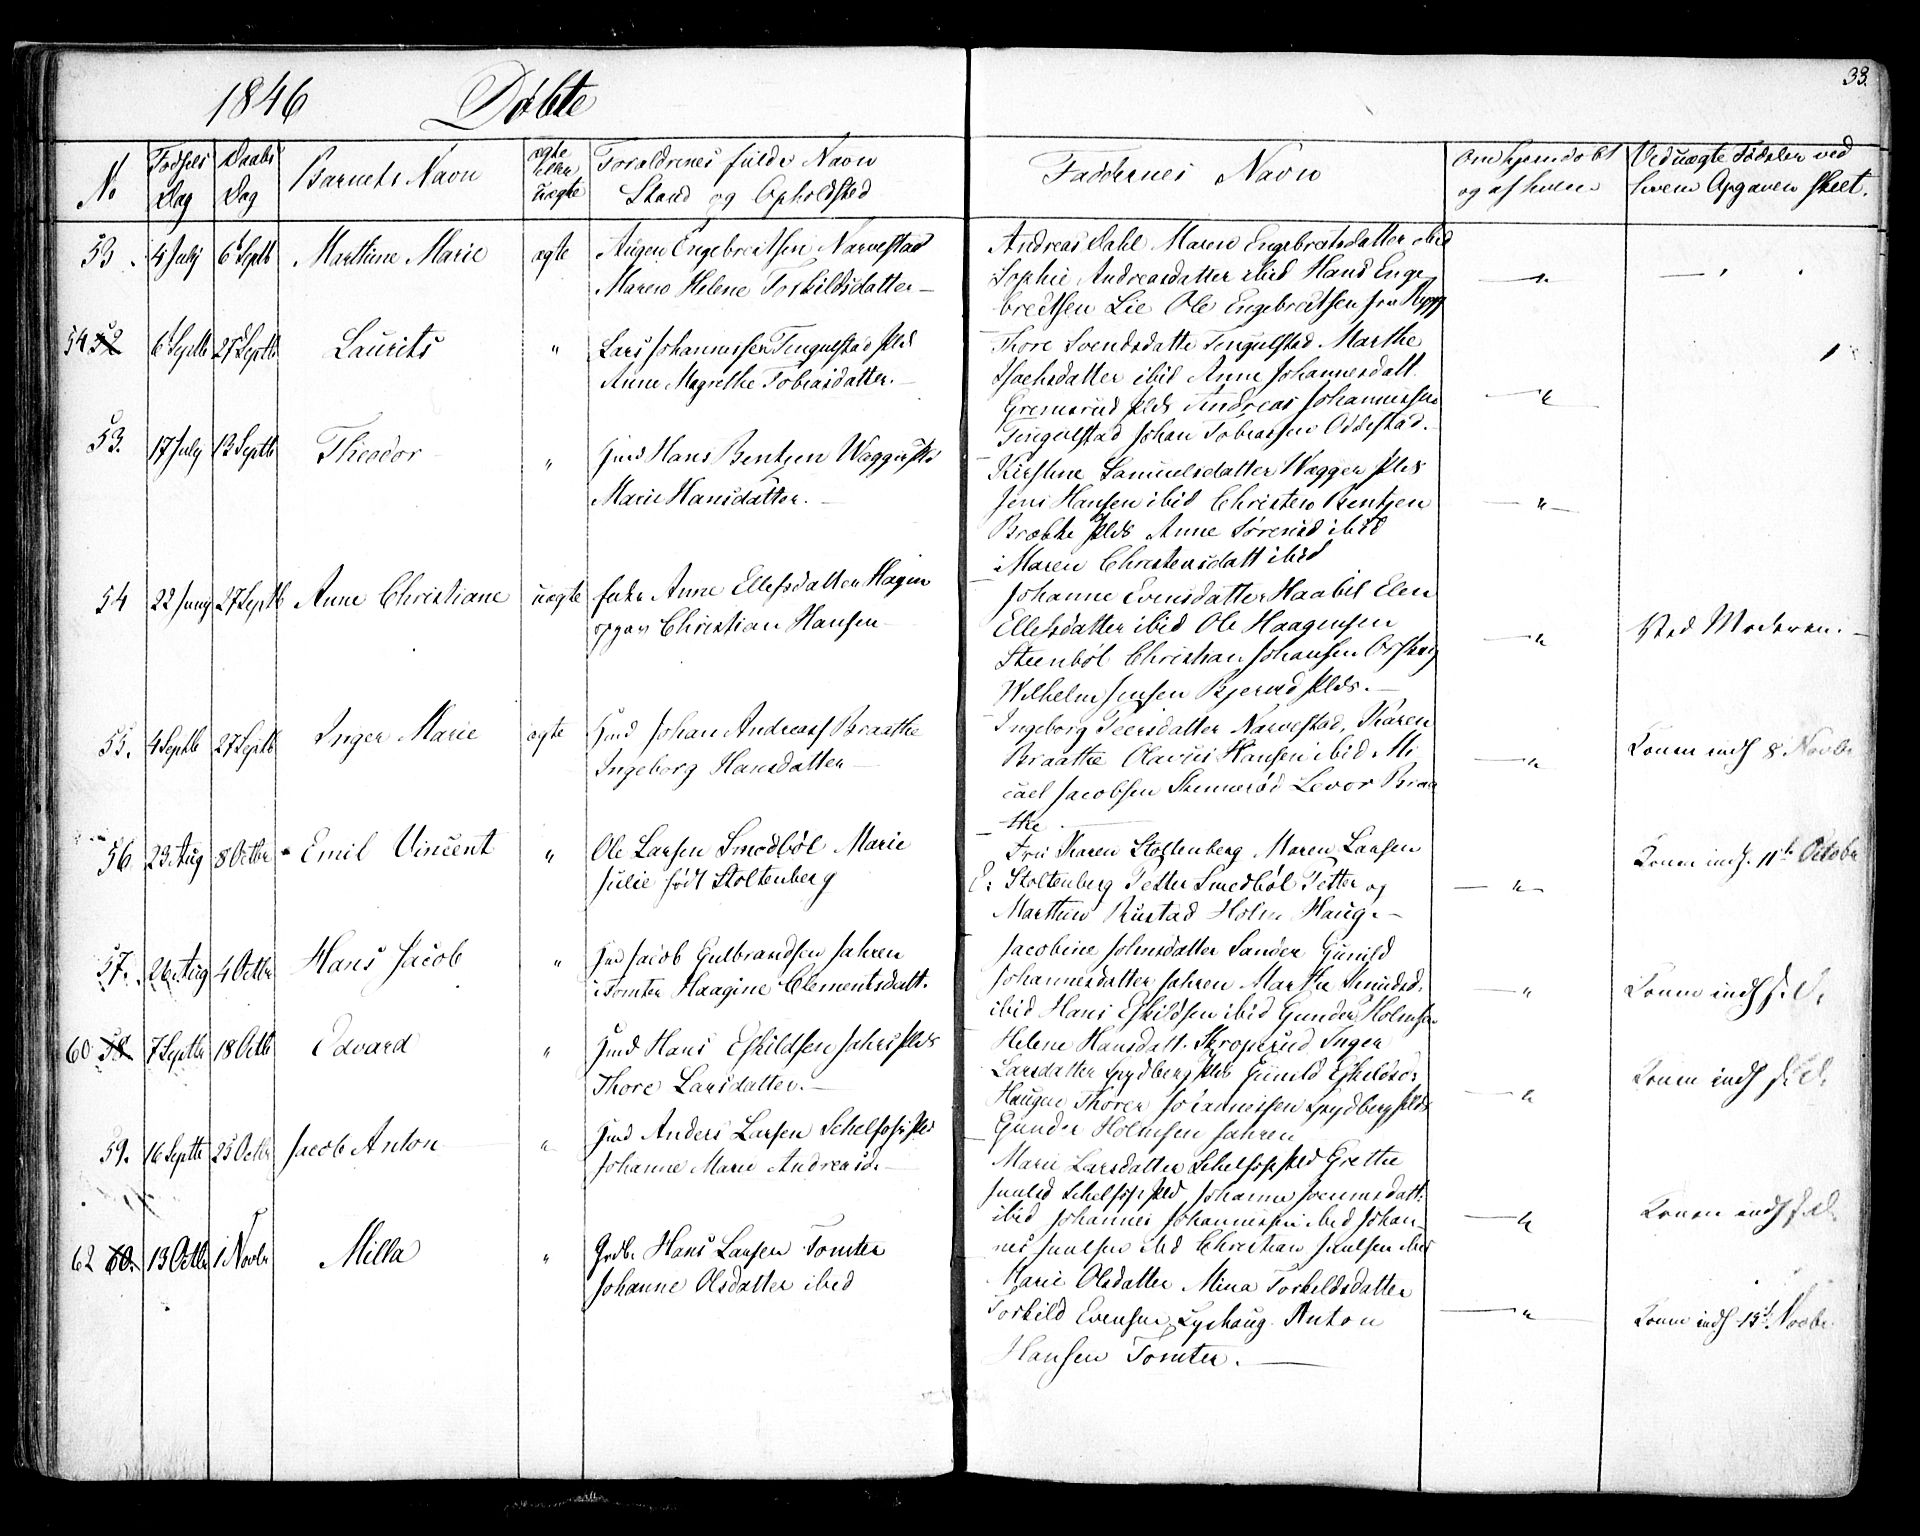 33.
1846 Døbte
No
Fødsels Dag
Daabs Dag
Barnets Navn
ægte eller uægte
Forældrenes fulde Navn
Stand og Opholdsted
Faddernes Navn
Om hjemdøbt
og af hvem
Ved uægte Fødsler ved
hvem Opgaven skeet.
53. 4 July 6 Septb Marthine Marie ægte Engebrethsen Narvestad
Maren Helene Torkildsdatter
Andreas Dahl Maren Engebretsdatter ibid
Sophie Andreasdatter ibid Hans Enge
bredtsen Lie Ole Engebredtsen fra
54 52 6 Septb 27 Septb Laurits " Lars Johannessen Tingulstad Plds
Anne Magrethe Tobiasdatter.
Thore Svendsdatte Tingulstad Marthe
Isachsdatter ibid Anne Johannesdatt.
Gremsrud Plds Andreas Johannessen
Tingulstad Johan Tobiassen Oddestad.
53. 17 July 13 Septb Theodor " Hmd Hans Bentzen
Marie Hansdatter.
Kirstine Samuelsdatter Wagger Plds
Jens Hansen ibid Christen Bentzen
Brække Plds Anne Sørensd ibid
Maren Christensdatt ibid
54 22 Juny 27 Septb Anne Christiane uægte Anne Ellefsdatter
Christian Hansen
Johanne Evensdatter Haabil Elen
Ellefsdatter ibid Ole Haagensen
Steenbøl Christian Johansen
Wilhelm Jensen Bjerud Plds.
Ved Moderen.
55. 4 Septb 27 Septb Inger Marie ægte Hmd Johan Andreass Braathe
Ingeborg Hansdatter
Ingeborg Peersdatter Narvestad, Karen
Braathe Olavus Hansen ibid Mi
cael Jacobsen Levor Braa
the
Konen indl 8 Novbr
56 23 Aug 8 Octbr Emil Vincent " Ole Larsen Smedbøl Marie
Julie født Stoltenberg
Fru Karen Stoltenberg Maren Larsen
E: Stoltenberg Petter Smedbøl Petter og
Rustad Holm Haug.
Konen indl. 11te Octobr
57. 26 Aug 4 Octbr Hans Jacob " Hmd Jacob Gulbrandsen Jahren
Tomter Haagine Clementsdatt.
Jacobine Johnsdatter Sander Gunild
Johannesdatter Jahren Marthe Knudsd.
ibid Hans Eskildsen ibid Gunder Holmsen
Konen indl s. D.
60 58 7 Septbr 18 Octb Edvard " Hmd Hans Eskildsen Plds
Thore Larsdatter.
Helene Hansdatt. Skroperud Inger
Larsdatter Spydberg Plds Gunild
Haugen Thorer Johannessen Spydberg Plds
Gunder Holmsen Jahren
Konen indl s. D.
59. 16 Septb 25 Octbr Jacob Anton " Hmd Anders Larsen
Johanne Marie Andreasd.
Marie Larsdatter Grethe
Johanne
ibid Johannes Johannessen ibid Johan-
nes ibid Christian ibid
Konen indl s. D.
62 60. 13 Octbr 1 Novbr Milla " Grdbr Hans Larsen Tomter
Johanne Olsdatter ibid
Marie Olsdatter Mina Torkildsdatter
Torkild Evensen Lyshaug Anton
Hansen Tomter.
Konen indl 15de Novbr